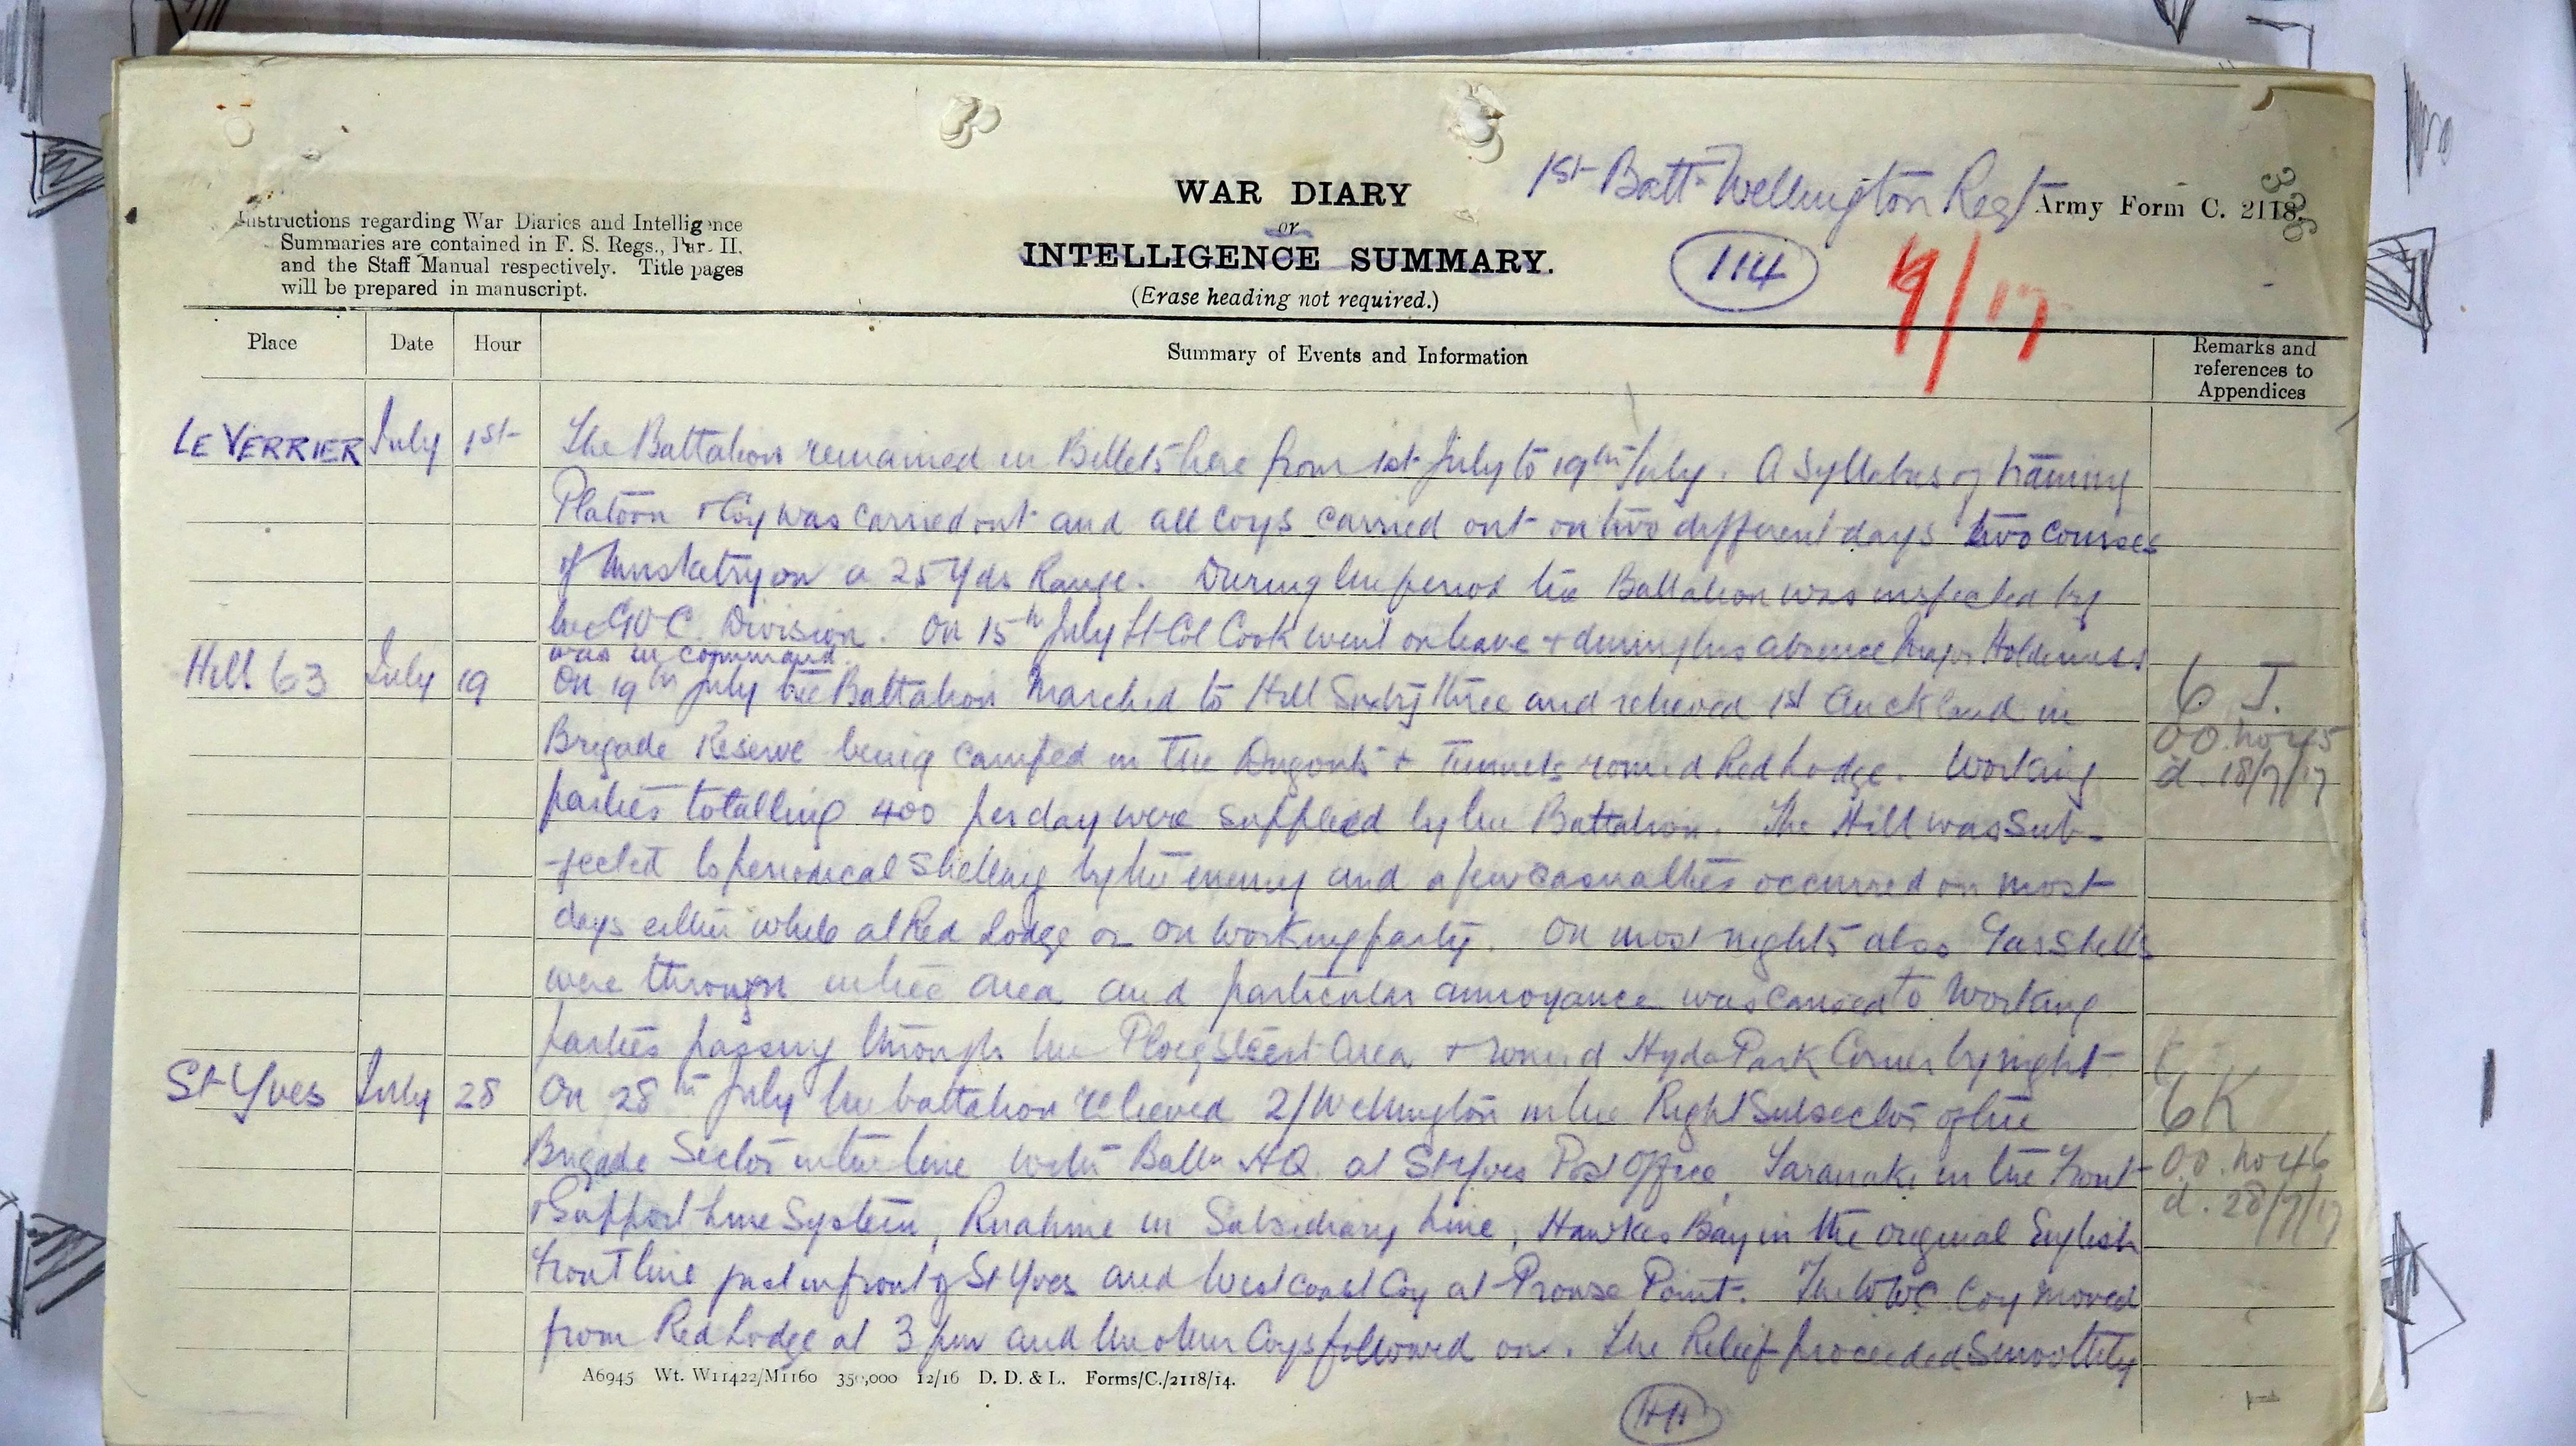 1st Batt Wellington Regt
Army Form C. 2118.
336
WAR DIARY
or
INTELLIGENCE SUMMARY.
(Erase heading not required.)
Instructions regarding War Diaries and Intelligence
Summaries are contained in F. S. Regs., Part II.
and the Staff Manual respectively. Title pages
will be prepared in manuscript.
114
7/17
Place Date Hour Summary of Events and Information Remarks and
references to
Appendices
LE VERRIER July 1st The Battalion remained in Billets here from 1st July to 19th July. A Syllabus of training
Platoon & Coy was carried out and all Coys carried out on two different days two courses
of Musketry on a 25 Yds Range. During the period the Battalion was inspected by
the GOC Division. On 15th July Lt Col Cook went on leave & during his absence Major Holderness
was in command.
Hill 63 July 19 On 19th July the Battalion marched to Hill Sixty three and relieved 1st Auckland in 6 J.
Brigade Reserve being camped in the Dugouts & Tunnels round Red Lodge. Working OO. no 45
parties totalling 400 per day were supplied by the Battalion. The Hill was sub- d. 18/7/17
-jected to periodical shelling by the enemy and a few casualties occurred on most
days either while at Red Lodge or on working party. On most nights also Gas Shells
were thrown in the area and particular annoyance was caused to working
parties passing through the Ploegsteert Area & round Hyde Park Corner by night
St Yves July 28 On 28th July the battalion relieved 2/Wellington in the Right Subsector of the 6K
Brigade Sector in the line with Battn HQ at St Yves Post Office, Taranaki in the Front OO. no 46
& Support Line System, Ruahine in Subsidiary Line, Hawkes Bay in the original English d. 28/7/17
Front line just in front of St Yves and West Coast Coy at Prowse Point. The WWC Coy moved
from Red Lodge at 3 pm and the other Coys followed on. The Relief proceeded smoothly
A6945 Wt. W11422/M1160 350,000 12/16 D. D. & L. Forms/C./2118/14.
1